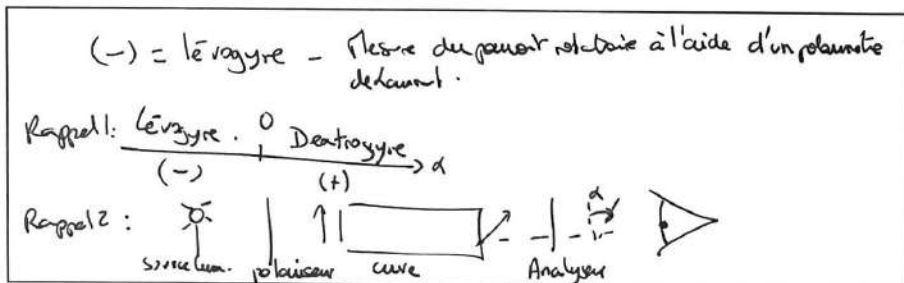 (-) = lévogyre - Mesure du pouvoir rotatoire à l'aide d'un polarimètre
de Laurent.
Rappel 1: Lévogyre. 0 Dextrogyre
(-) (+) α
Rappel 2 : α
source lum. polariseur cuve Analyseur